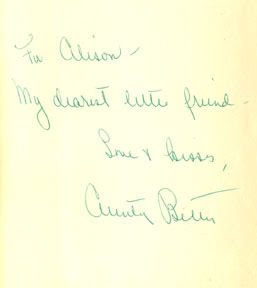 For Alison -
My dearest little friend -
Love & kisses,
Aunty Betty